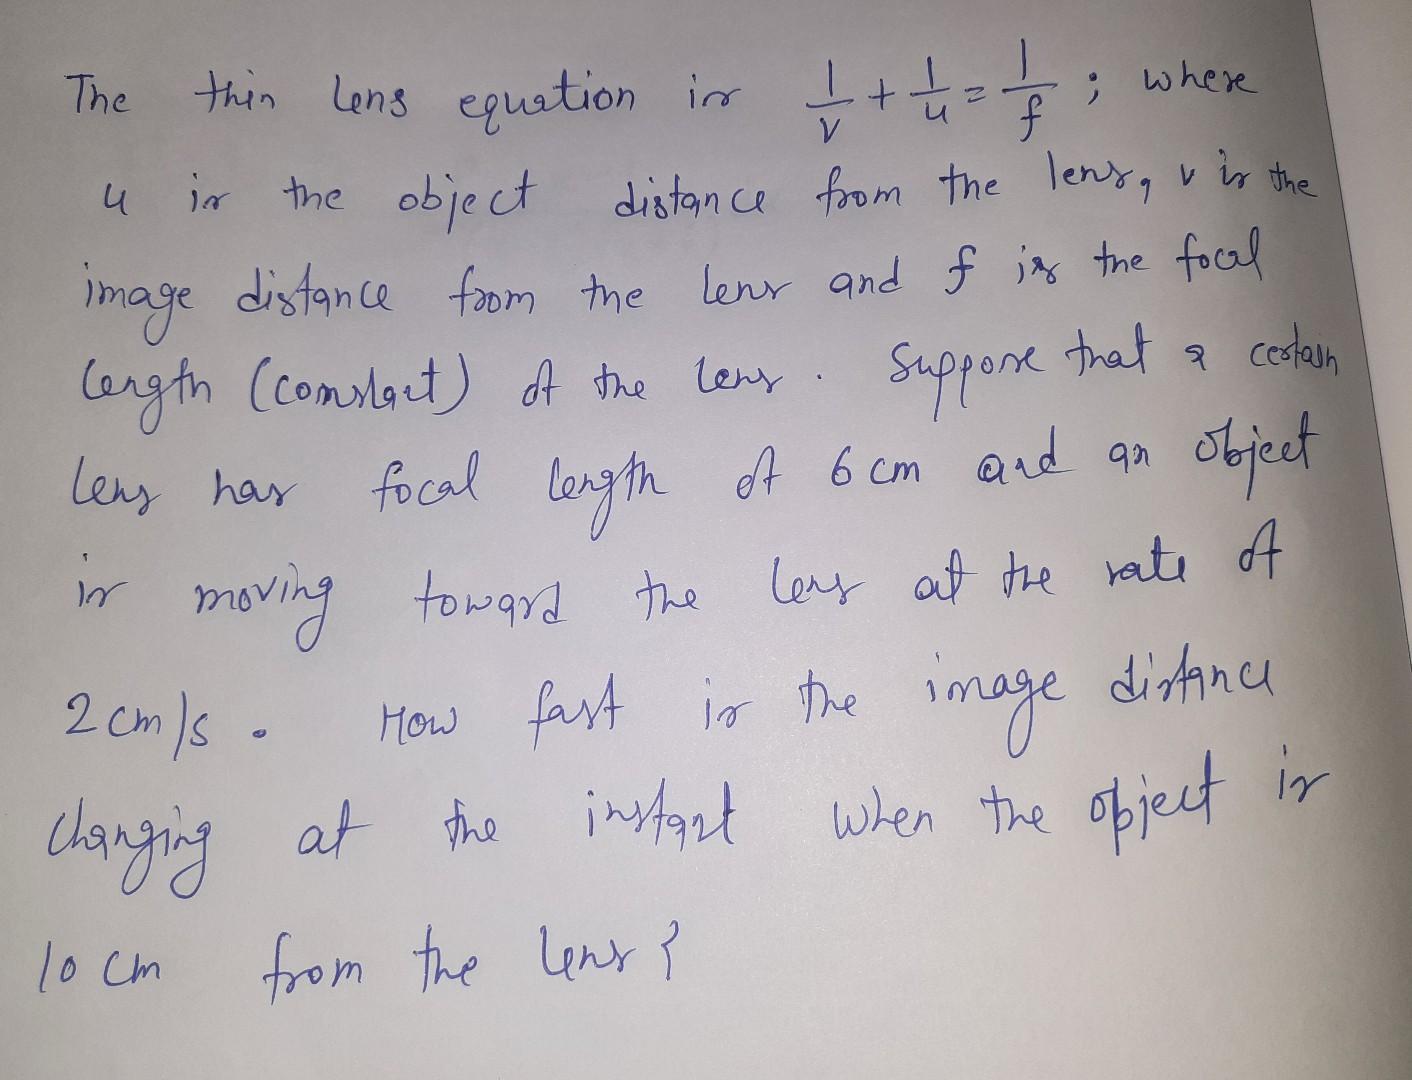 The thin lens equation is 1/v + 1/u = 1/f ; where
u is the object distance from the lens, v is the
image distance from the lens and f is the focal
length (constant) of the lens . Suppose that a certain
lens has focal length of 6 cm and an object
is moving toward the lens at the rate of
2 cm/s . How fast is the image distance
changing at the instant when the object is
10 cm from the lens ?